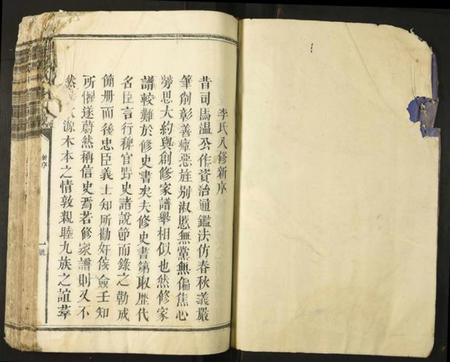 李氏八修新序
昔司馬溫公作資治通鑑法仿春秋義嚴
筆削彰善癉惡旌別淑慝無黨無偏焦心
勞思大約與創修家譜舉相似也然修家
譜較難於修史書矣夫修史書第取歷代
名臣言行稗官野史諸說節而錄之勒成
簡册而後忠臣義士知所勸奸侫僉壬知
所懼遂蔚然稱信史焉若修家譜則又不
然 源木本之情敦親睦九族之誼萃
新序
一